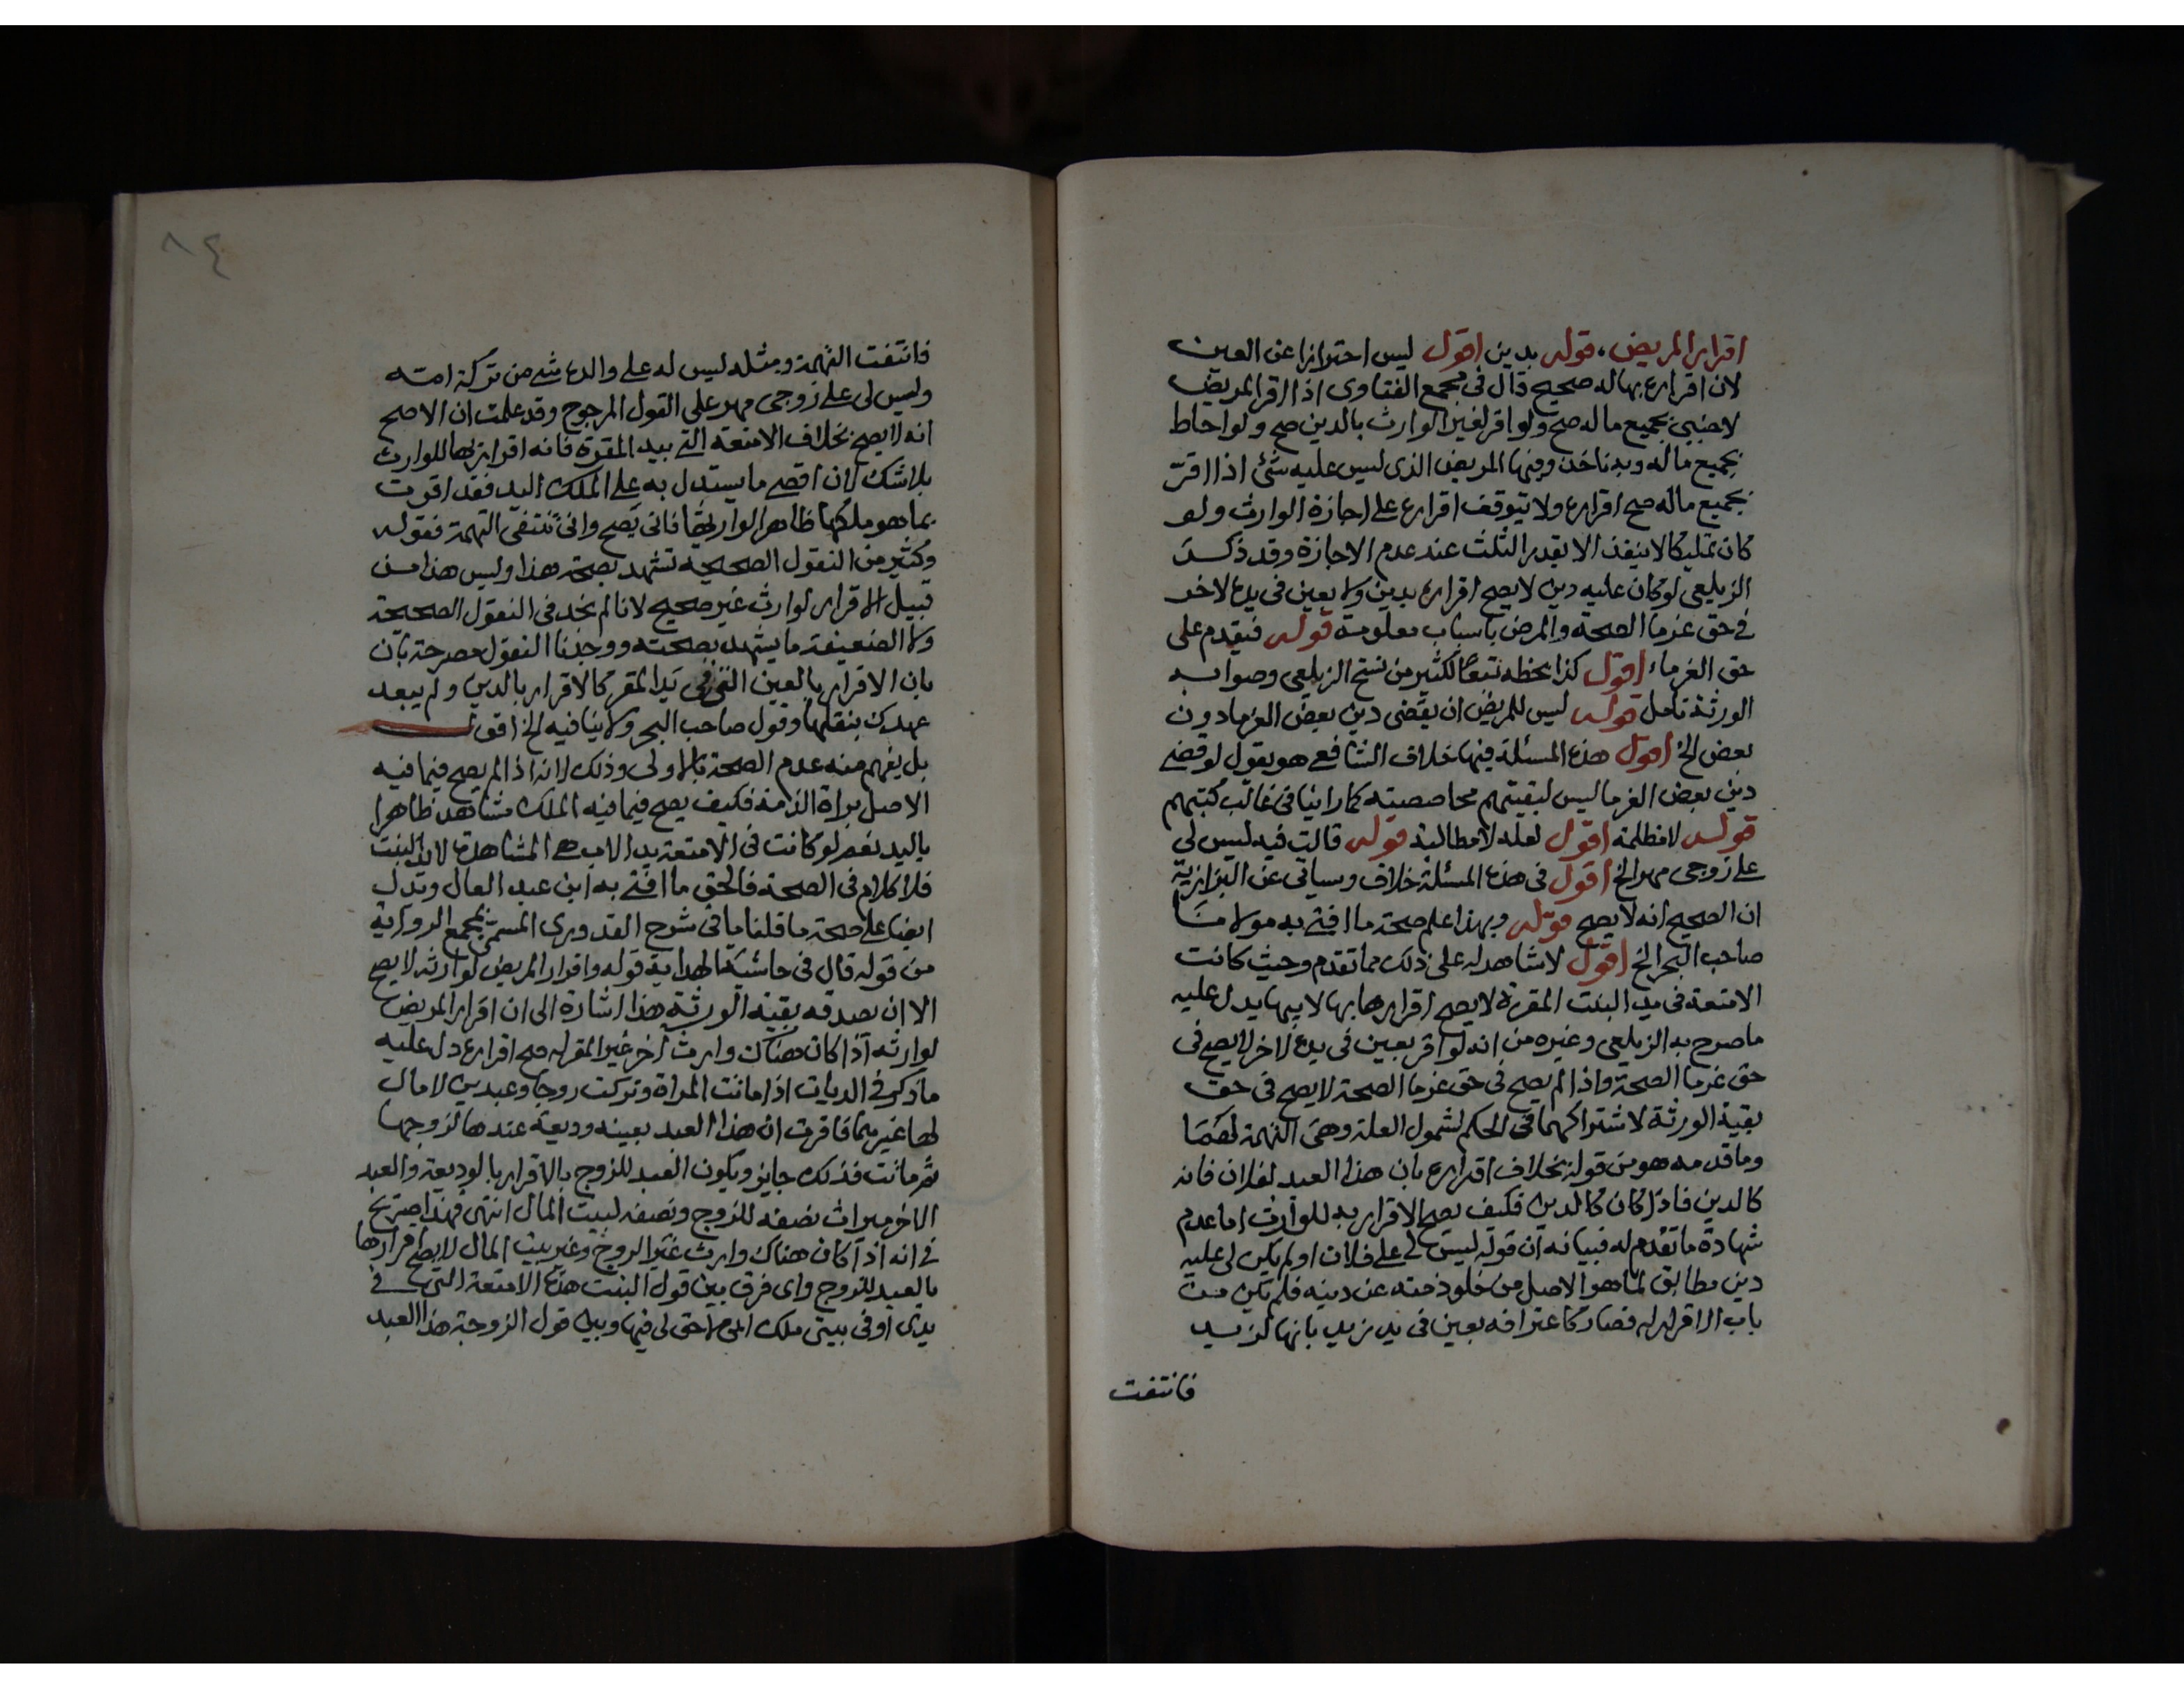 اقرار المريض، قوله بدين اقول ليس احترازا عن العين
لان اقراره بها له صحيح قال في مجمع الفتاوى اذا اقر المريض
لاجنبي بجميع ماله صح ولو اقر لغير الوارث بالدين صح ولو احاط
بجميع ماله وبه ناخذ وفيها المريض الذي ليس عليه شئ اذا اقر
بجميع ماله صح اقراره ولا يتوقف اقراره على اجازة الوارث ولو
كان تمليكا لا ينفذ الا بقدر الثلث عند عدم الاجازة وقد ذكر
الزيلعي لو كان عليه دين لا يصح اقراره بدين ولا بعين في يده لاخر
في حق غرما الصحة والمرض باسباب معلومة قوله فيقدم على
حق الغرماء اقول كذا بخطه تبعا لكثير من نسخ الزيلعي وصوابه
الورثة تامل قوله ليس للمريض ان يقضي دين بعض الغرما دون
بعض الخ اقول هذه المسئلة فيها خلاف الشافعي هو يقول لو قضى
دين بعض الغرما ليس لبقيتهم محاصصته كما راينا في غالب كتبهم
قوله لا مظلمة اقول لعله لا مطالبة قوله قالت فيه ليس لي
على زوجي مهر الخ اقول في هذه المسئلة خلاف وسياتي عن البزازية
ان الصحيح انه لا يصح قوله وبهذا علم صحة ما افتى به مولانا
صاحب البحر الخ اقول لا شاهد له على ذلك مما تقدم وحيث كانت
الامتعة في يد البنت المقرة لا يصح اقرارها بها لابيها يدل عليه
ما صرح به الزيلعي وغيره من انه لو اقر بعين في يده لاخر لا يصح في
حق غرما الصحة واذا لم يصح في حق غرما الصحة لا يصح في حق
بقية الورثة لاشتراكهما في الحكم لشمول العلة وهي التهمة لهما
وما قدمه هو من قوله بخلاف اقراره بان هذا العبد لفلان فانه
كالدين فاذا كان كالدين فكيف يصح الاقرار به للوارث اما عدم
شهادة ما تقدم له فبيانه ان قوله ليس لي على فلان او لم يكن لي عليه
دين مطابق لما هو الاصل من خلو ذمته عن دينه فلم يكن من
باب الاقرار له فصار كاعترافه بعين في يد زيد بانها لزيد
فانتفت
٨٤
فانتفت التهمة ومثله ليس له على والده شي من تركة امه
وليس لي على زوجي مهر على القول المرجوح وقد علمت ان الاصح
انه لا يصح بخلاف الامتعة التي بيد المقرة فانه اقرار بها للوارث
بلا شك لان اقصى ما يستدل به على الملك اليد فقد اقرت
بما هو ملكها ظاهرا لوارثها فانى يصح وانى تنتفي التهمة فقوله
وكثير من النقول الصحيحة تشهد بصحة هذا وليس هذا من
قبيل الاقرار لوارث غير صحيح لانا لم نجد في النقول الصحيحة
ولا الضعيفة ما يشهد بصحته ووجدنا النقول مصرحة بان
بان الاقرار بالعين التي في يد المقر كالاقرار بالدين ولم يبعد
عهدك بنقلها وقول صاحب البحر ولا ينافيه الخ اقول
بل يفهم منه عدم الصحة بالاولى وذلك لانه اذا لم يصح فيما فيه
الاصل براة الذمة فكيف يصح فيما فيه الملك مشاهد ظاهرا
باليد نعم لو كانت في الامتعة يد الاب هي المشاهدة لا يد البنت
فلا كلام في الصحة فالحق ما افتى به ابن عبد العال وتدل
ايضا على صحة ما قلنا ما في شرح القدوري المسمى بمجمع الرواية
من قوله قال في حاشية الهداية قوله واقرار المريض لوارثه لا يصح
الا ان يصدقه بقية الورثة هذا اشارة الى ان اقرار المريض
لوارثه اذا كان هناك وارث اخر غير المقر له صح اقراره دل عليه
ما ذكر في الديات اذا ماتت المراة وتركت زوجا وعبدين لا مال
لها غيرهما فاقرت ان هذا العبد بعينه وديعة عندها لزوجها
ثم ماتت فذلك جايز ويكون العبد للزوج بالاقرار بالوديعة والعبد
الاخر ميراث نصفه للزوج ونصفه لبيت المال انتهى فهذا صريح
في انه اذا كان هناك وارث غير الزوج وغير بيت المال لا يصح اقرارها
بالعبد للزوج واي فرق بين قول البنت هذه الامتعة التي في
يدي او في بيتي ملك ابي لا حق لي فيها وبين قول الزوجة هذا العبد